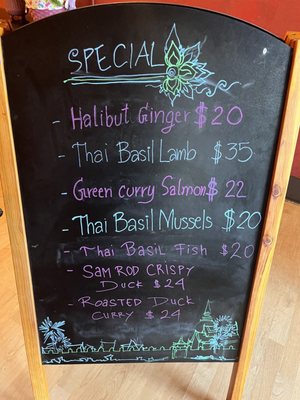 SPECIAL
- Halibut Ginger $20
- Thai Basil Lamb $35
- Green curry Salmon $22
- Thai Basil Mussels $20
- Thai Basil Fish $20
- SAM ROD CRISPY
DUCK $24
- ROASTED DUCK
CURRY $24